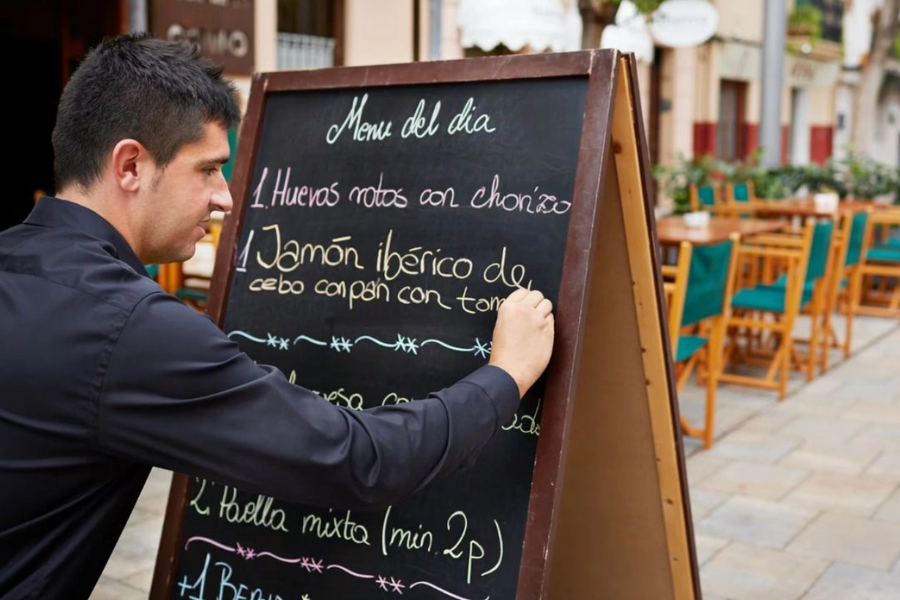 Menu del dia
1. Huevos rotos con chorizo
1 Jamón ibérico de
cebo con pan con tom
2. Paella mixta (min. 2 p)
+1